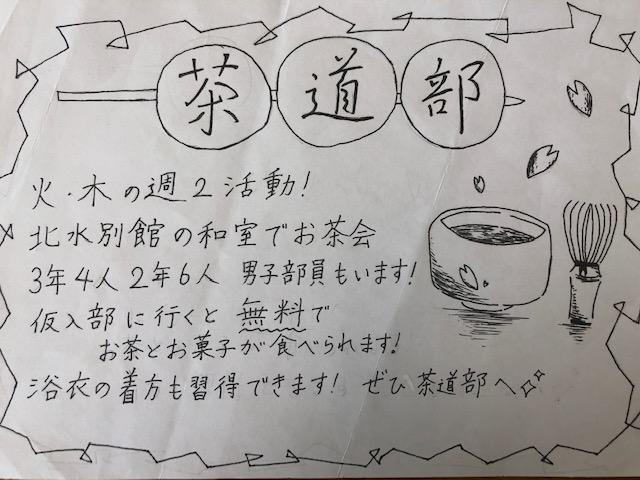 茶道部
火・木の週2活動!
北水別館の和室でお茶会
3年4人 2年6人 男子部員もいます!
仮入部に行くと無料で
お茶とお菓子が食べられます!
浴衣の着方も習得できます! ぜひ茶道部へ